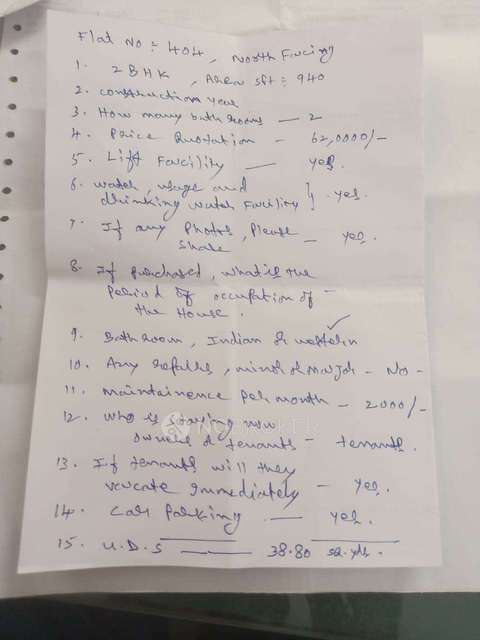 Flat No :- 404, North Facing
1. 2 BHK, Area sft :- 940
2. construction year
3. How many bath rooms — 2
4. Price Quotation - 62,0000/-
5. Lift Facility — yes.
6. water, usage and
drinking water Facility } yes.
7. If any Photos, Please
share - yes.
8. If purchased, what is the
period of occupation of -
the House.
9. Bath room, Indian or western ✓
10. Any repairs, minor or major - No -
11. maintainence per month - 2000/-
12. who is staying now
owner or tenants - tenants.
13. If tenants will they
vacate immediately - yes.
14. Car parking — yes.
15. U.D.S — 38.80 sq. yds.